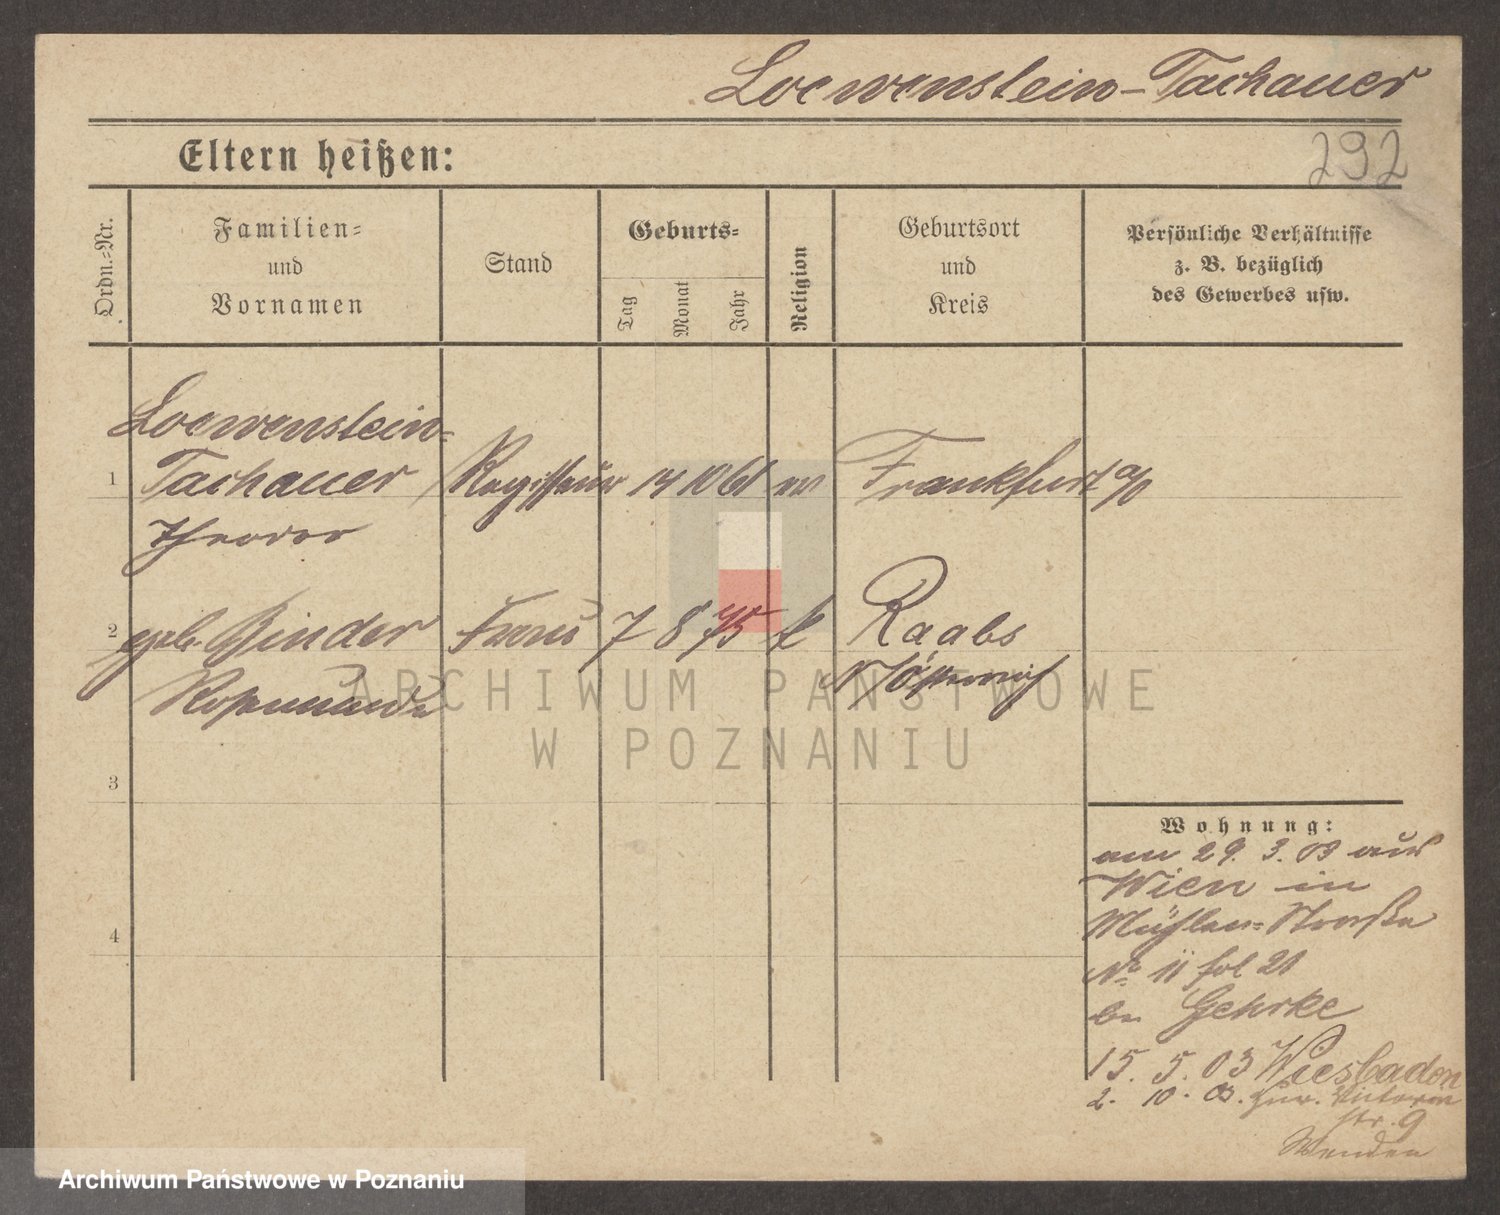 Loewenstein-Tachauer
Eltern heißen:
292
Ordn.-Nr.
Familien-
und
Vornamen
Stand
Geburts-
Tag
Monat
Jahr
Religion
Geburtsort
und
Kreis
Persönliche Verhältnisse
z. B. bezüglich
des Gewerbes usw.
Loewenstein-
1 Tachauer Regisseur 14 10 61 m Frankfurt a/O
Theodor
2 geb. Binder Frau 7 8 75 k Raabs
Rosamunde N/Österreich
ARCHIWUM PAŃSTWOWE
W POZNANIU
3
4
Wohnung:
am 29. 3. 03 aus
Wien in
Mühlen-Straße
No 11 fol 21
bei Gehrke
15. 5. 03 Wiesbaden
2. 10. 03. zur.
str. 9
Wenden
Archiwum Państwowe w Poznaniu